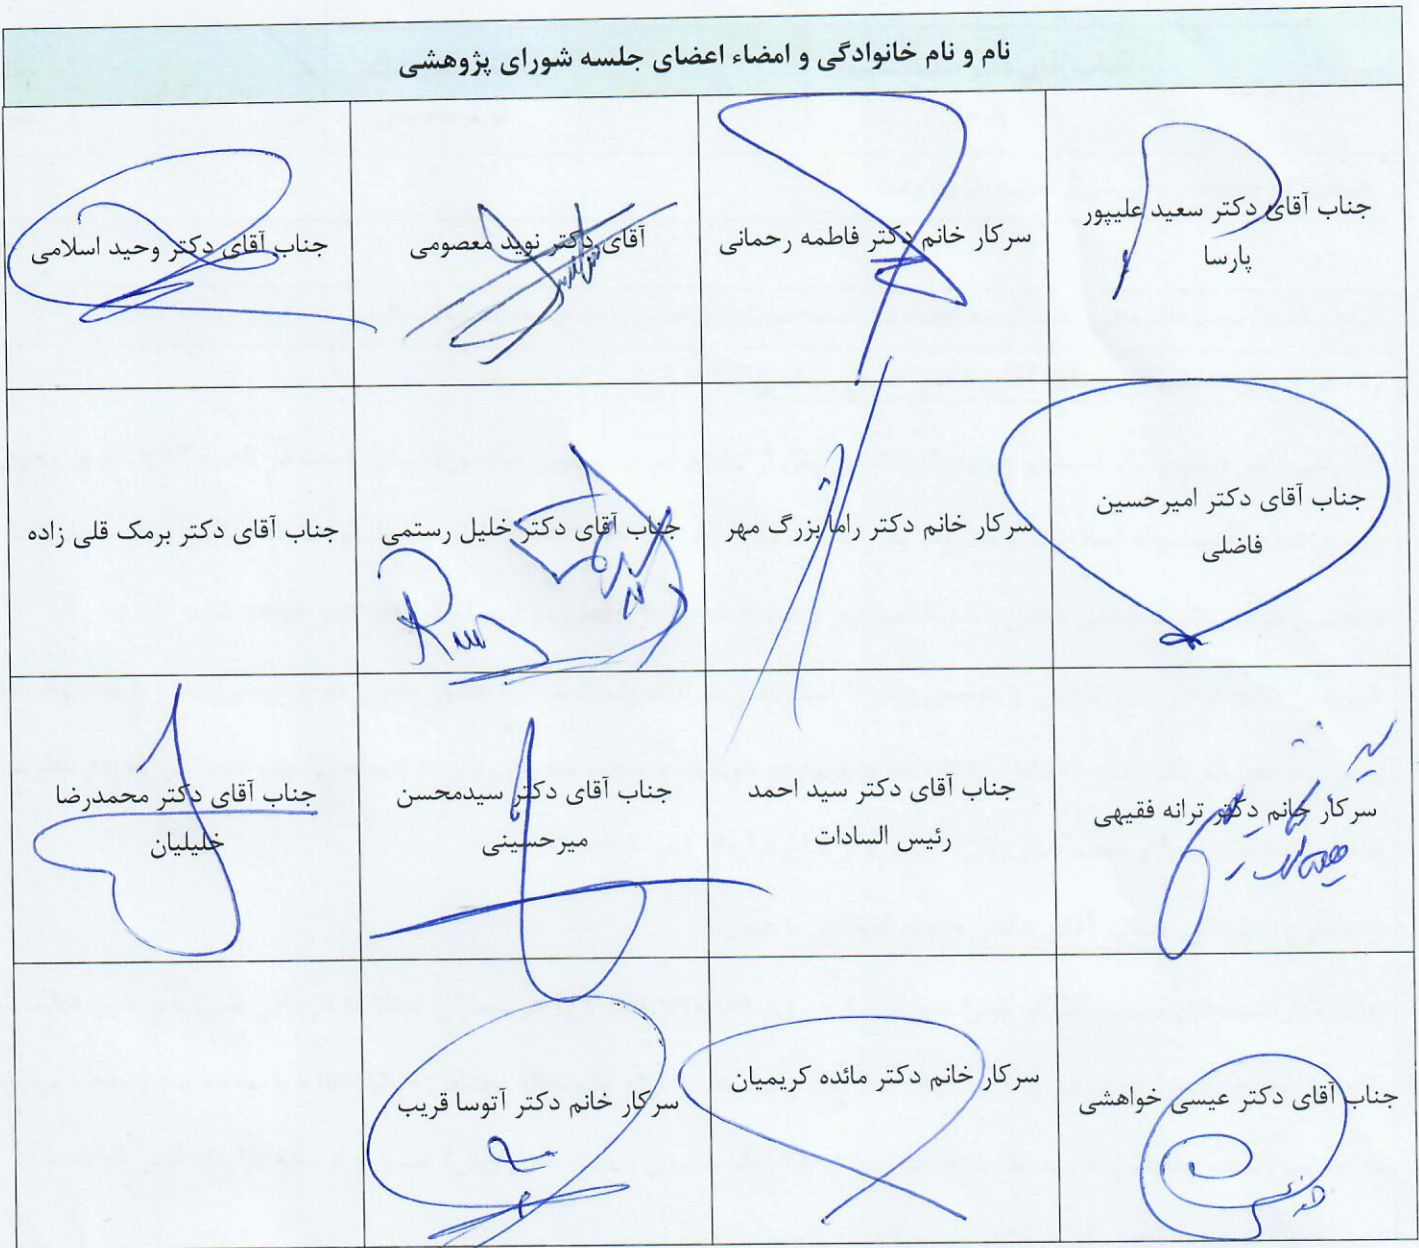 نام و نام خانوادگی و امضاء اعضای جلسه شورای پژوهشی
جناب آقای دکتر سعید علیپور
پارسا
سرکار خانم دکتر فاطمه رحمانی
آقای دکتر نوید معصومی
جناب آقای دکتر وحید اسلامی
جناب آقای دکتر امیرحسین
فاضلی
سرکار خانم دکتر راما بزرگ مهر
جناب آقای دکتر خلیل رستمی
جناب آقای دکتر برمک قلی زاده
سرکار خانم دکتر ترانه فقیهی
جناب آقای دکتر سید احمد
رئیس السادات
جناب آقای دکتر سیدمحسن
میرحسینی
جناب آقای دکتر محمدرضا
خلیلیان
جناب آقای دکتر عیسی خواهشی
سرکار خانم دکتر مائده کریمیان
سرکار خانم دکتر آتوسا قریب